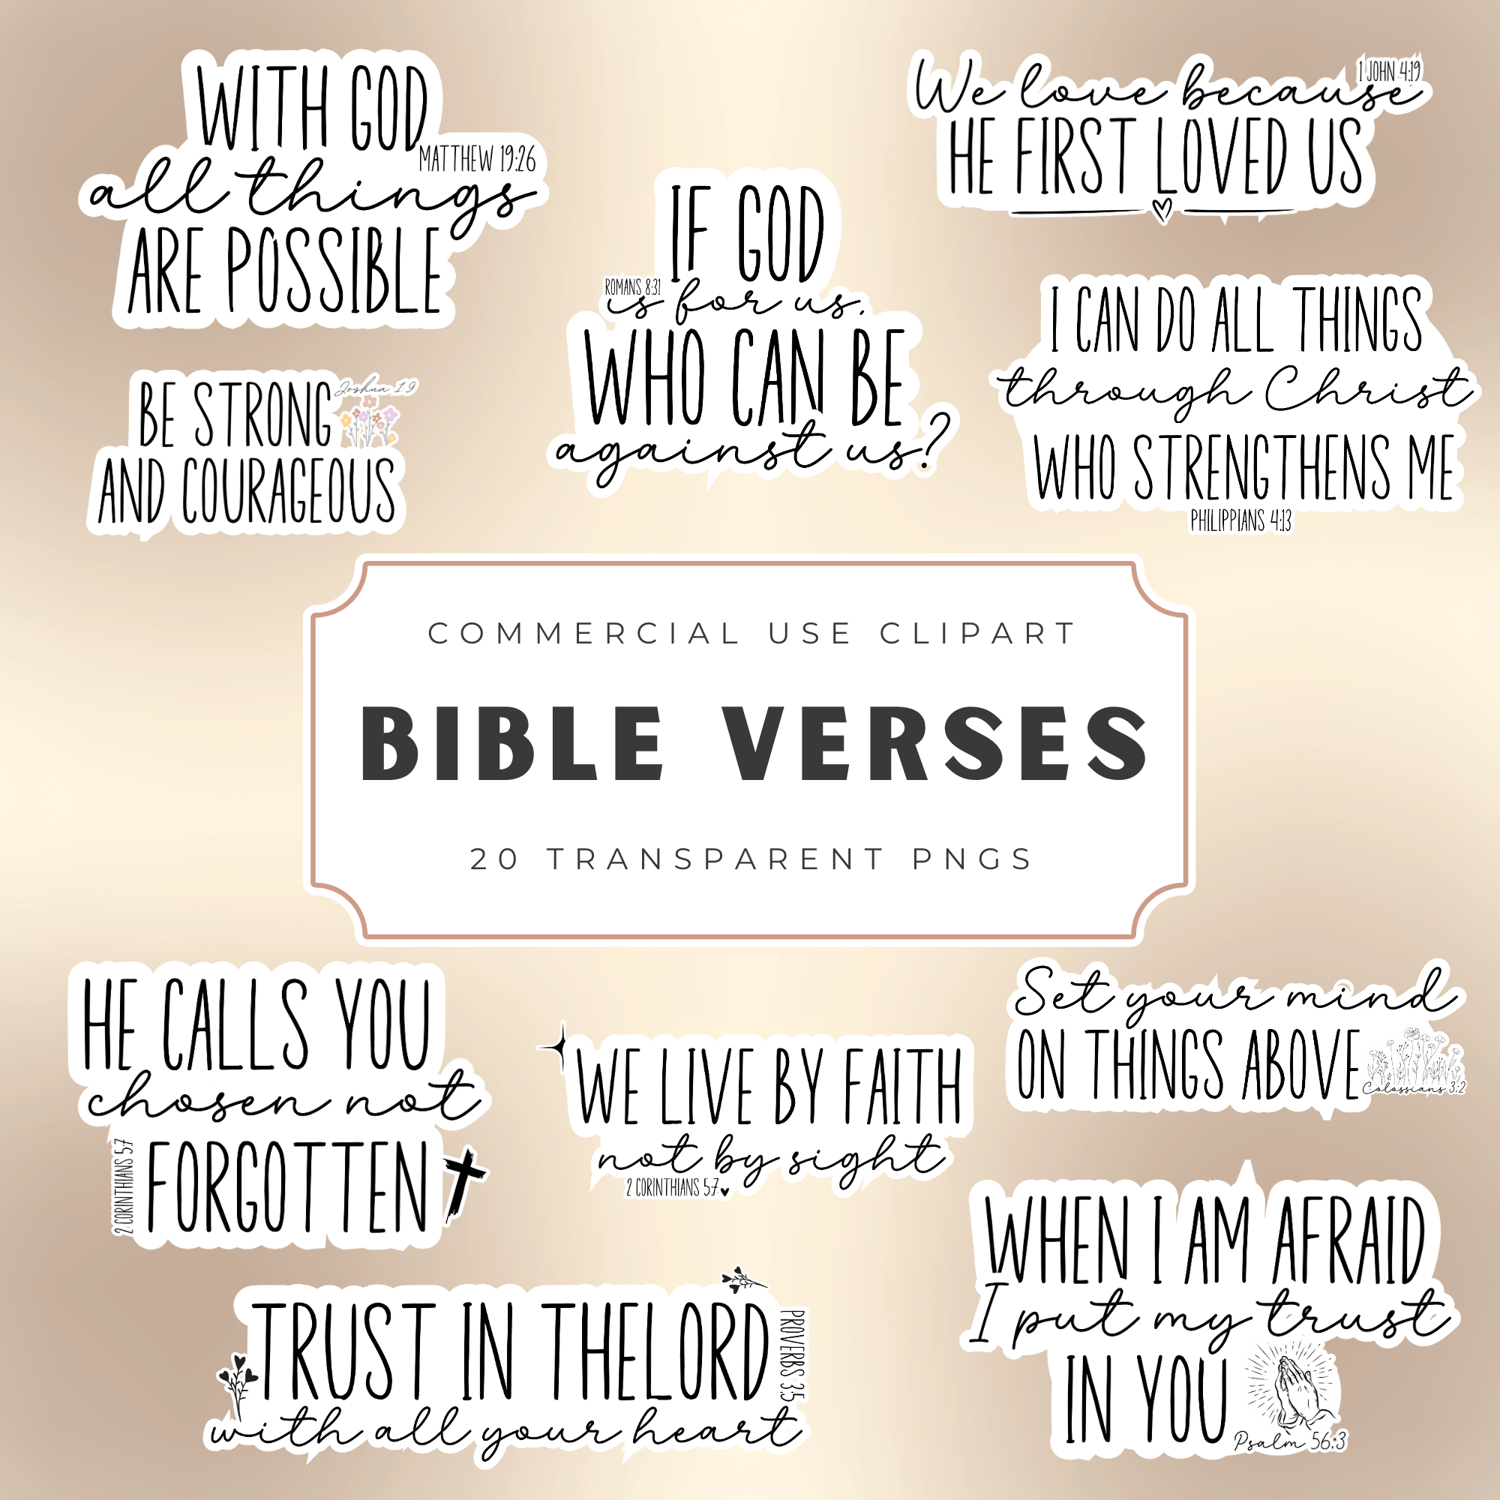 WITH GOD
MATTHEW 19:26
all things
ARE POSSIBLE
We love because
1 JOHN 4:19
HE FIRST LOVED US
IF GOD
ROMANS 8:31
is for us,
WHO CAN BE
against us?
I CAN DO ALL THINGS
through Christ
WHO STRENGTHENS ME
PHILIPPIANS 4:13
BE STRONG
Joshua 1:9
AND COURAGEOUS
COMMERCIAL USE CLIPART
BIBLE VERSES
20 TRANSPARENT PNGS
HE CALLS YOU
chosen not
FORGOTTEN
2 CORINTHIANS 5:7
WE LIVE BY FAITH
not by sight
2 CORINTHIANS 5:7
Set your mind
ON THINGS ABOVE
Colossians 3:2
WHEN I AM AFRAID
I put my trust
IN YOU
Psalm 56:3
TRUST IN THELORD
PROVERBS 3:5
with all your heart